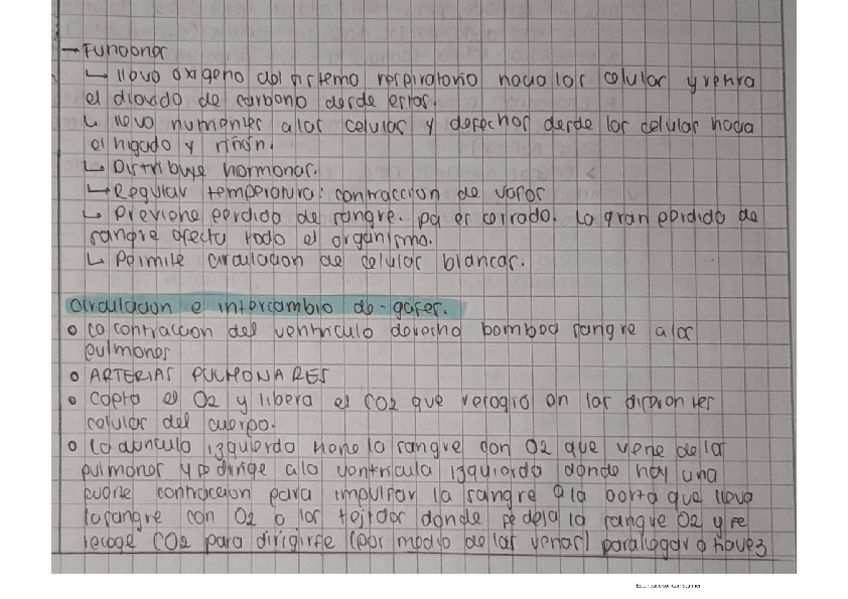 → Funciones
↳ lleva oxigeno del sistema respiratorio hacia las celulas y retira
el dioxido de carbono desde estas.
↳ lleva nutrientes a las celulas y desechos desde las celulas hacia
el higado y riñon.
↳ Distribuye hormonas.
↳ Regular temperatura: contraccion de vasos
↳ Previene perdida de sangre. es cerrado. La gran perdida de
sangre afecta todo el organismo.
↳ Permite circulacion de celulas blancas.
Circulacion e intercambio de-gases.
o La contraccion del ventriculo derecho bombea sangre a las
pulmones
o ARTERIAS PULMONARES
o Capta el O2 y libera el CO2 que recogio en las diferentes
celulas del cuerpo.
o La auricula izquierda tiene la sangre con O2 que viene de los
pulmones y se dirige a la ventricula izquierda donde hay una
fuerte contraccion para impulsar la sangre a la aorta que lleva
la sangre con O2 a los tejidos donde se deja la sangre O2 y se
recoge CO2 para dirigirse (por medio de las venas) para llegar a